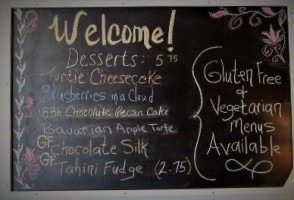 Welcome!
Desserts: 5.75
Turtle Cheesecake
Blueberries in a Cloud
Chocolate Pecan Cake
Bavarian Apple Torte
GF Chocolate Silk
GF Tahini Fudge (2.75)
Gluten Free
&
Vegetarian
Menus
Available